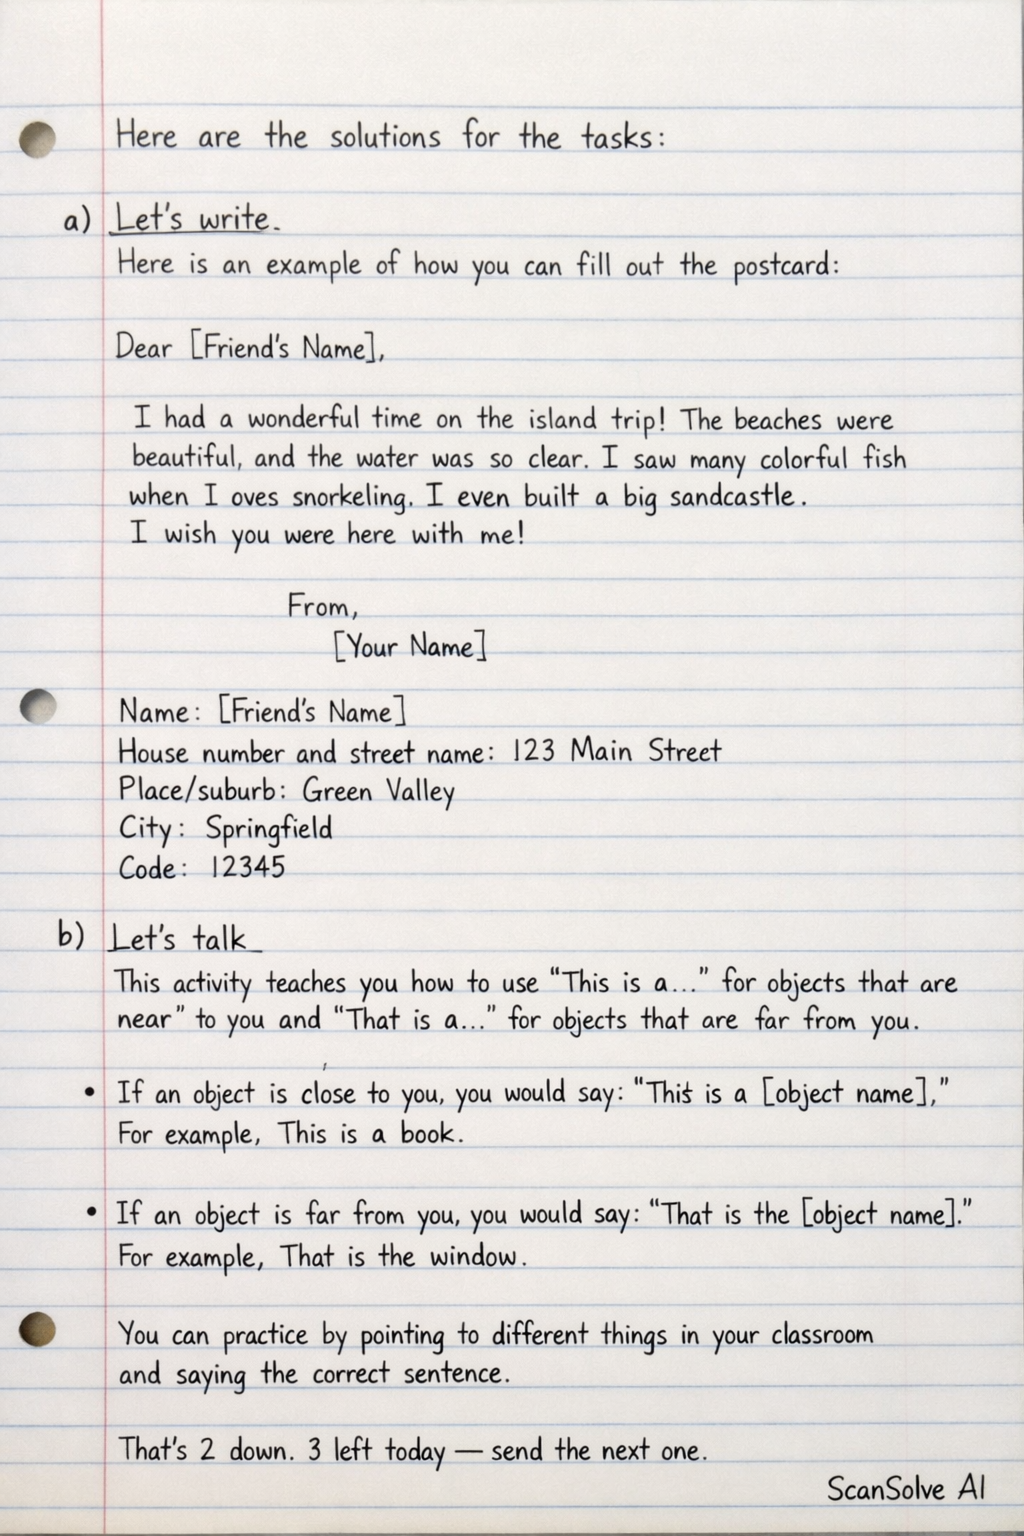 Here are the solutions for the tasks:
a) Let's write.
Here is an example of how you can fill out the postcard:
Dear [Friend's Name],
I had a wonderful time on the island trip! The beaches were
beautiful, and the water was so clear. I saw many colorful fish
when I oves snorkeling. I even built a big sandcastle.
I wish you were here with me!
From,
[Your Name]
Name: [Friend's Name]
House number and street name: 123 Main Street
Place/suburb: Green Valley
City: Springfield
Code: 12345
b) Let's talk
This activity teaches you how to use “This is a...” for objects that are
near” to you and “That is a...” for objects that are far from you.
• If an object is close to you, you would say: “This is a [object name],”
For example, This is a book.
• If an object is far from you, you would say: “That is the [object name].”
For example, That is the window.
You can practice by pointing to different things in your classroom
and saying the correct sentence.
That's 2 down. 3 left today — send the next one.
ScanSolve AI